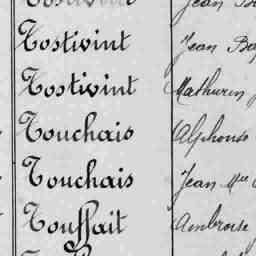 Tostivint Jean
Tostivint Mathurin
Touchais Alphonse
Touchais Jean Mie
Touffait Ambroise